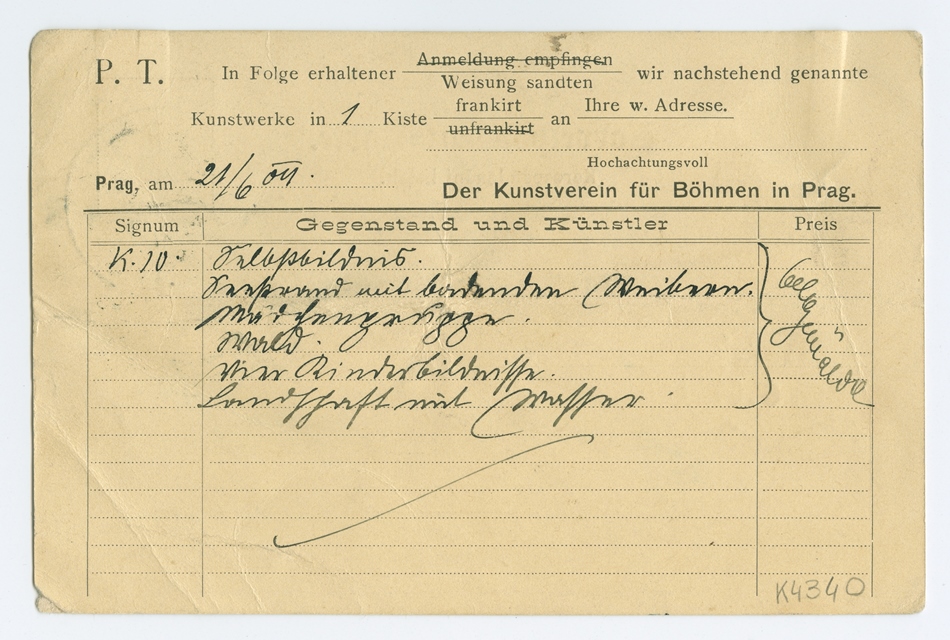 P. T.
In Folge erhaltener Anmeldung empfingen wir nachstehend genannte
Weisung sandten
Kunstwerke in 1 Kiste frankirt an Ihre w. Adresse.
unfrankirt
Hochachtungsvoll
Prag, am 21/6
Der Kunstverein für Böhmen in Prag.
Signum Gegenstand und Künstler Preis
K. 10. Selbstbildnis.
Seestrand mit badenden Weibern.
Mädchengruppe.
Wald.
Vier Kinderbildnisse.
Landschaft mit Wasser
Oelgemälde
K4340